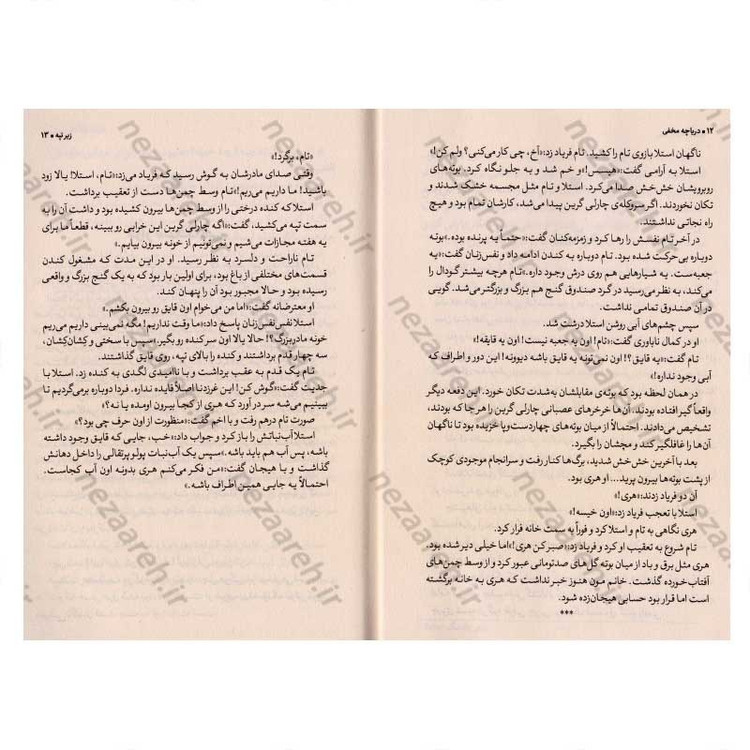 ۱۲ ● دریاچه مخفی
ناگهان استلا بازوی تام را کشید. تام فریاد زد:«آخ، چی کار می‌کنی؟ ولم کن!»
استلا به آرامی گفت:«هیسس!» و خم شد و به جلو نگاه کرد. بوته‌های
روبرویشان خش‌خش صدا می‌کرد. استلا و تام مثل مجسمه خشک شدند و
تکان نخوردند. اگر سروکله‌ی چارلی گرین پیدا می‌شد، کارشان تمام بود و هیچ
راه نجاتی نداشتند.
در آخر تام نفسش را رها کرد و زمزمه‌کنان گفت:«حتماً یه پرنده بوده.» بوته
دوباره بی‌حرکت شده بود. تام دوباره به کندن ادامه داد و نفس‌زنان گفت:«یه
جعبه‌ست. یه شیارهایی هم روی درش وجود داره.» تام هرچه بیشتر گودال را
می‌کند، به نظر می‌رسید در گرد صندوق گنج هم بزرگ و بزرگتر می‌شد. گویی
در آن صندوق تمامی نداشت.
سپس چشم‌های آبی روشن استلا درشت شد.
او در کمال ناباوری گفت:«تام! اون یه جعبه نیست! اون یه قایقه!»
تام گفت:«یه قایق؟! اون نمی‌تونه یه قایق باشه دیوونه! این دور و اطراف که
آبی وجود نداره!»
در همان لحظه بود که بوته‌ی مقابلشان به‌شدت تکان خورد. این دفعه دیگر
واقعاً گیر افتاده بودند. آن‌ها خرخرهای عصبانی چارلی گرین را هر جا که بودند،
تشخیص می‌دادند. احتمالاً از میان بوته‌های چهاردست‌وپا خزیده بود تا ناگهان
آن‌ها را غافلگیر کند و مچشان را بگیرد.
بعد با آخرین خش خش شدید، برگ‌ها کنار رفت و سرانجام موجودی کوچک
از پشت بوته‌ها بیرون پرید... او هری بود.
آن دو فریاد زدند:«هری!»
استلا با تعجب فریاد زد:«اون خیسه!»
هری نگاهی به تام و استلا کرد و فوراً به سمت خانه فرار کرد.
تام شروع به تعقیب او کرد و فریاد زد:«صبر کن هری!» اما خیلی دیر شده بود.
هری مثل برق و باد از میان بوته گل‌های صدتومانی عبور کرد و از وسط چمن‌های
آفتاب‌خورده گذشت. خانم مون هنوز خبر نداشت که هری به خانه برگشته
است اما قرار بود حسابی هیجان‌زده شود.
***
زیر تپه ● ۱۳
«تام، برگرد!»
وقتی صدای مادرشان به گوش رسید که فریاد می‌زد:«تام، استلا! یالا زود
باشید! ما داریم می‌ریم!» تام وسط چمن‌ها دست از تعقیب برداشت.
استلا که کنده درختی را از وسط چمن‌ها بیرون کشیده بود و داشت آن را به
سمت تپه می‌کشید، گفت:«اگه چارلی گرین این خرابی رو ببینه، قطعاً ما برای
یه هفته مجازات می‌شیم و نمی‌تونیم از خونه بیرون بیایم.»
تام ناراحت و دلسرد به نظر رسید. او در این مدت که مشغول کندن
قسمت‌های مختلفی از باغ بود، برای اولین بار بود که به یک گنج بزرگ و واقعی
رسیده بود و حالا مجبور بود آن را پنهان کند.
او معترضانه گفت:«اما من می‌خوام اون قایق رو بیرون بکشم.»
استلا نفس‌نفس زنان پاسخ داد:«ما وقت نداریم! مگه نمی‌بینی داریم می‌ریم
خونه مادربزرگ؟! حالا یالا اون سر کنده رو بگیر.» سپس با سختی و کشان‌کشان،
سه چهار قدم برداشتند و کنده را بالای تپه، روی قایق گذاشتند.
تام یک قدم به عقب برداشت و با ناامیدی لگدی به کنده زد. استلا با
جدیت گفت:«گوش کن! این غر زدنا اصلاً فایده نداره. فردا دوباره برمی‌گردیم تا
ببینیم می‌شه سر در آورد که هری از کجا بیرون اومده یا نه؟»
صورت تام درهم رفت و با اخم گفت:«منظورت از اون حرف چی بود؟»
استلا آب‌نباتش را باز کرد و جواب داد:«خب، جایی که قایق وجود داشته
باشه، پس آب هم باید باشه.» سپس یک آب‌نبات پولو پرتقالی را داخل دهانش
گذاشت و با هیجان گفت:«من فکر می‌کنم هری بدونه اون آب کجاست.
احتمالاً یه جایی همین اطراف باشه.»
nezaareh.ir
nezaareh.ir
nezaareh.ir
nezaareh.ir
nezaareh.ir
nezaareh.ir